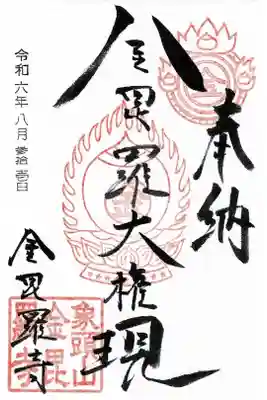 奉納
金毘羅大権現
令和六年八月参拾壱日
金毘羅寺
象頭山
金毘
羅寺